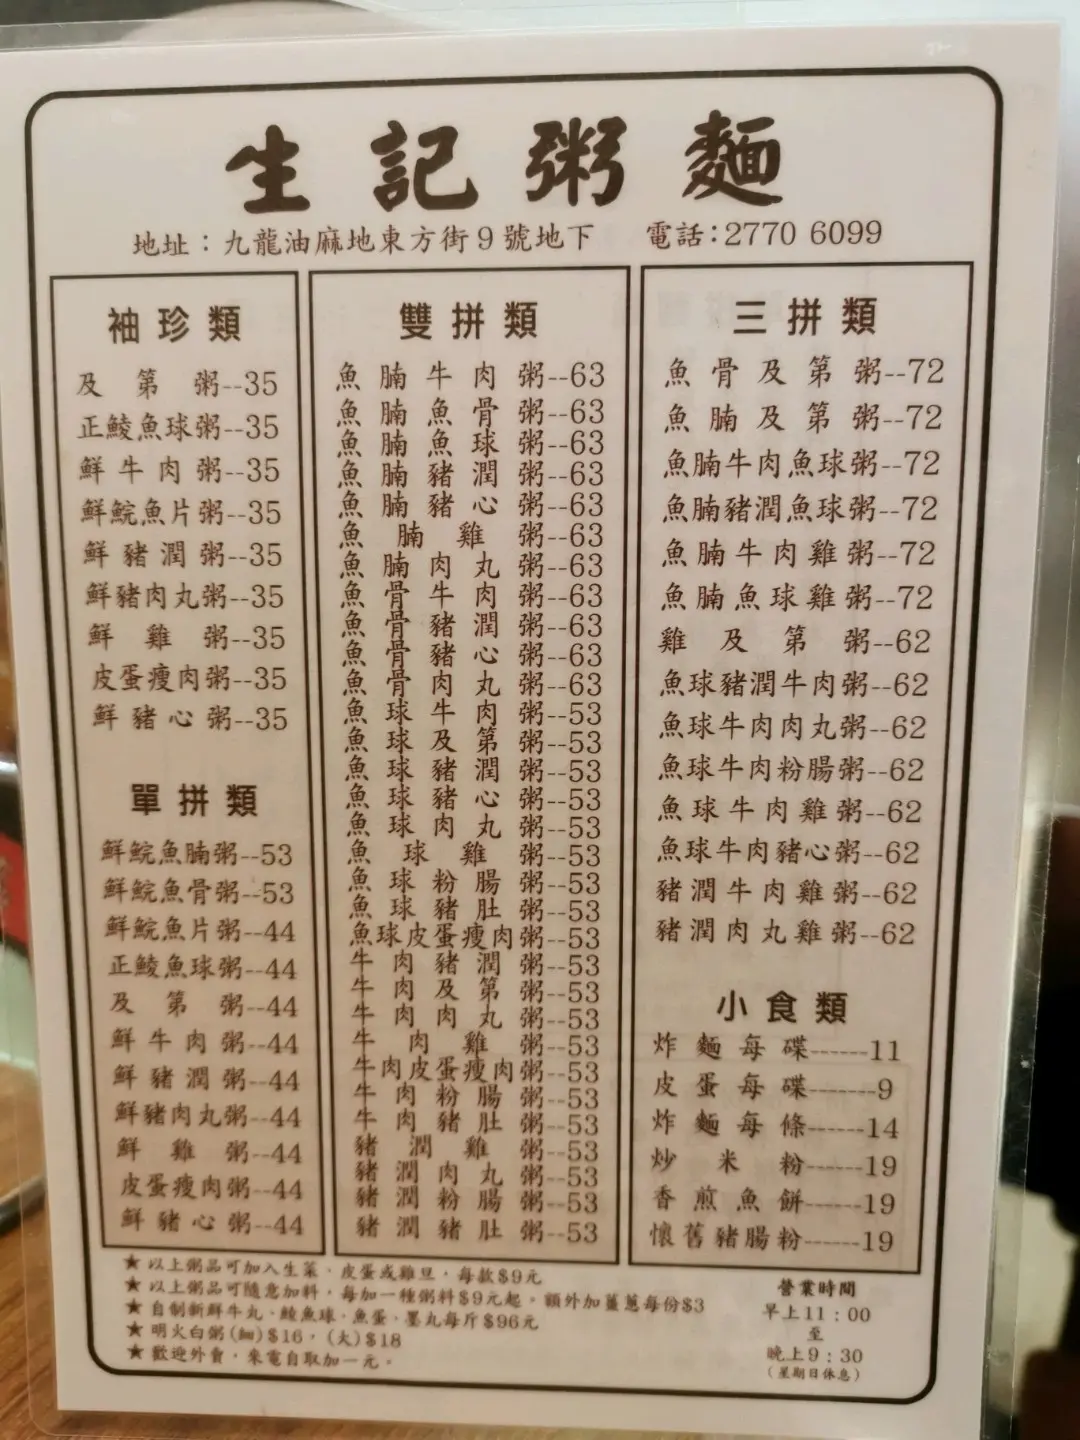 生記粥麵
地址：九龍油麻地東方街9號地下 電話：2770 6099
袖珍類
及第粥--35
正鯪魚球粥--35
鮮牛肉粥--35
鮮鯇魚片粥--35
鮮豬潤粥--35
鮮豬肉丸粥--35
鮮雞粥--35
皮蛋瘦肉粥--35
鮮豬心粥--35
單拼類
鮮鯇魚腩粥--53
鮮鯇魚骨粥--53
鮮鯇魚片粥--44
正鯪魚球粥--44
及第粥--44
鮮牛肉粥--44
鮮豬潤粥--44
鮮豬肉丸粥--44
鮮雞粥--44
皮蛋瘦肉粥--44
鮮豬心粥--44
雙拼類
魚腩牛肉粥--63
魚腩魚骨粥--63
魚腩魚球粥--63
魚腩豬潤粥--63
魚腩豬心粥--63
魚腩雞粥--63
魚腩肉丸粥--63
魚骨牛肉粥--63
魚骨豬潤粥--63
魚骨豬心粥--63
魚骨肉丸粥--63
魚球牛肉粥--53
魚球及第粥--53
魚球豬潤粥--53
魚球豬心粥--53
魚球肉丸粥--53
魚球雞粥--53
魚球粉腸粥--53
魚球豬肚粥--53
魚球皮蛋瘦肉粥--53
牛肉豬潤粥--53
牛肉及第粥--53
牛肉肉丸粥--53
牛肉雞粥--53
牛肉皮蛋瘦肉粥--53
牛肉粉腸粥--53
牛肉豬肚粥--53
豬潤雞粥--53
豬潤肉丸粥--53
豬潤粉腸粥--53
豬潤豬肚粥--53
三拼類
魚骨及第粥--72
魚腩及第粥--72
魚腩牛肉魚球粥--72
魚腩豬潤魚球粥--72
魚腩牛肉雞粥--72
魚腩魚球雞粥--72
雞及第粥--62
魚球豬潤牛肉粥--62
魚球牛肉肉丸粥--62
魚球牛肉粉腸粥--62
魚球牛肉雞粥--62
魚球牛肉豬心粥--62
豬潤牛肉雞粥--62
豬潤肉丸雞粥--62
小食類
炸麵每碟------11
皮蛋每碟------9
炸麵每條------14
炒米粉------19
香煎魚餅------19
懷舊豬腸粉------19
★以上粥品可加入生菜、皮蛋或雞旦，每款$9元
★以上粥品可隨意加料，每加一種粥料$9元起。額外加薑蔥每份$3
★自制新鮮牛丸、鯪魚球、魚蛋、墨丸每斤$96元
★明火白粥(細)$16，(大)$18
★歡迎外賣，來電自取加一元。
營業時間
早上11：00
至
晚上9：30
(星期日休息)